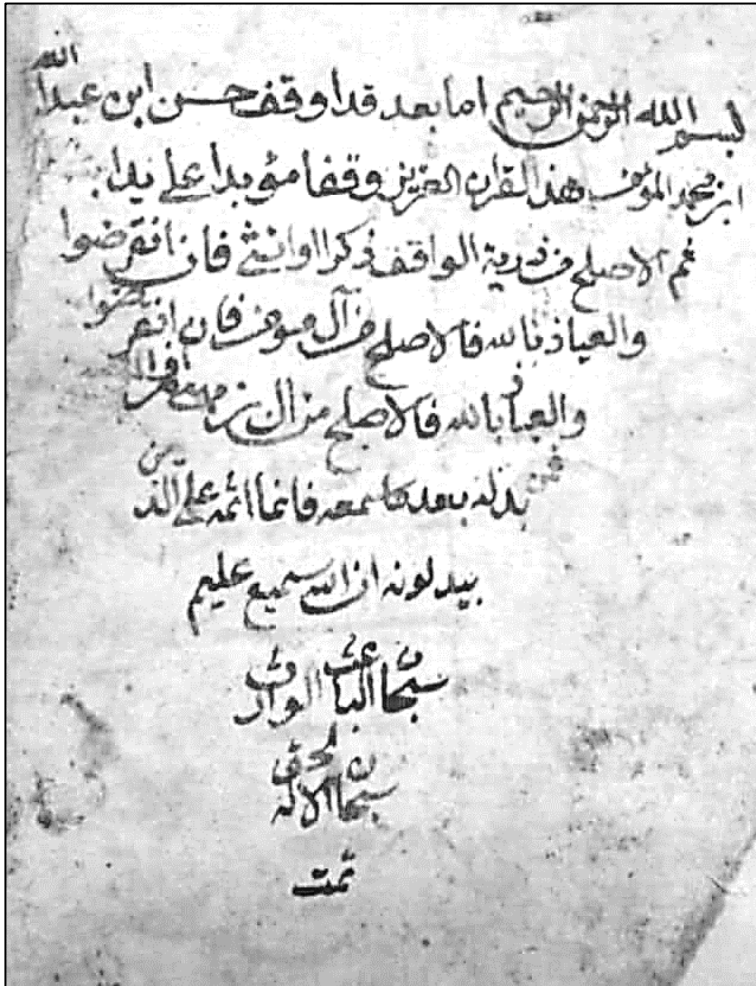 بسم الله الرحمن الرحيم اما بعد قد اوقف حسن ابن عبدالله
ابن محمد هذ القران العزيز وقفا مئوبدا على يدا
ثم الاصلح من ذرية الواقف ذكرا او انثى فان انقرضوا
والعياذ بالله فالاصلح من آل فان انقرضوا
والعياذ بالله فالاصلح من ال
فمن بدله بعد ما سمعه فانما اثمه على الذين
يبدلونه ان الله سميع عليم
سبحان الباعث الوارث
سبحان الاله الحق
تمت